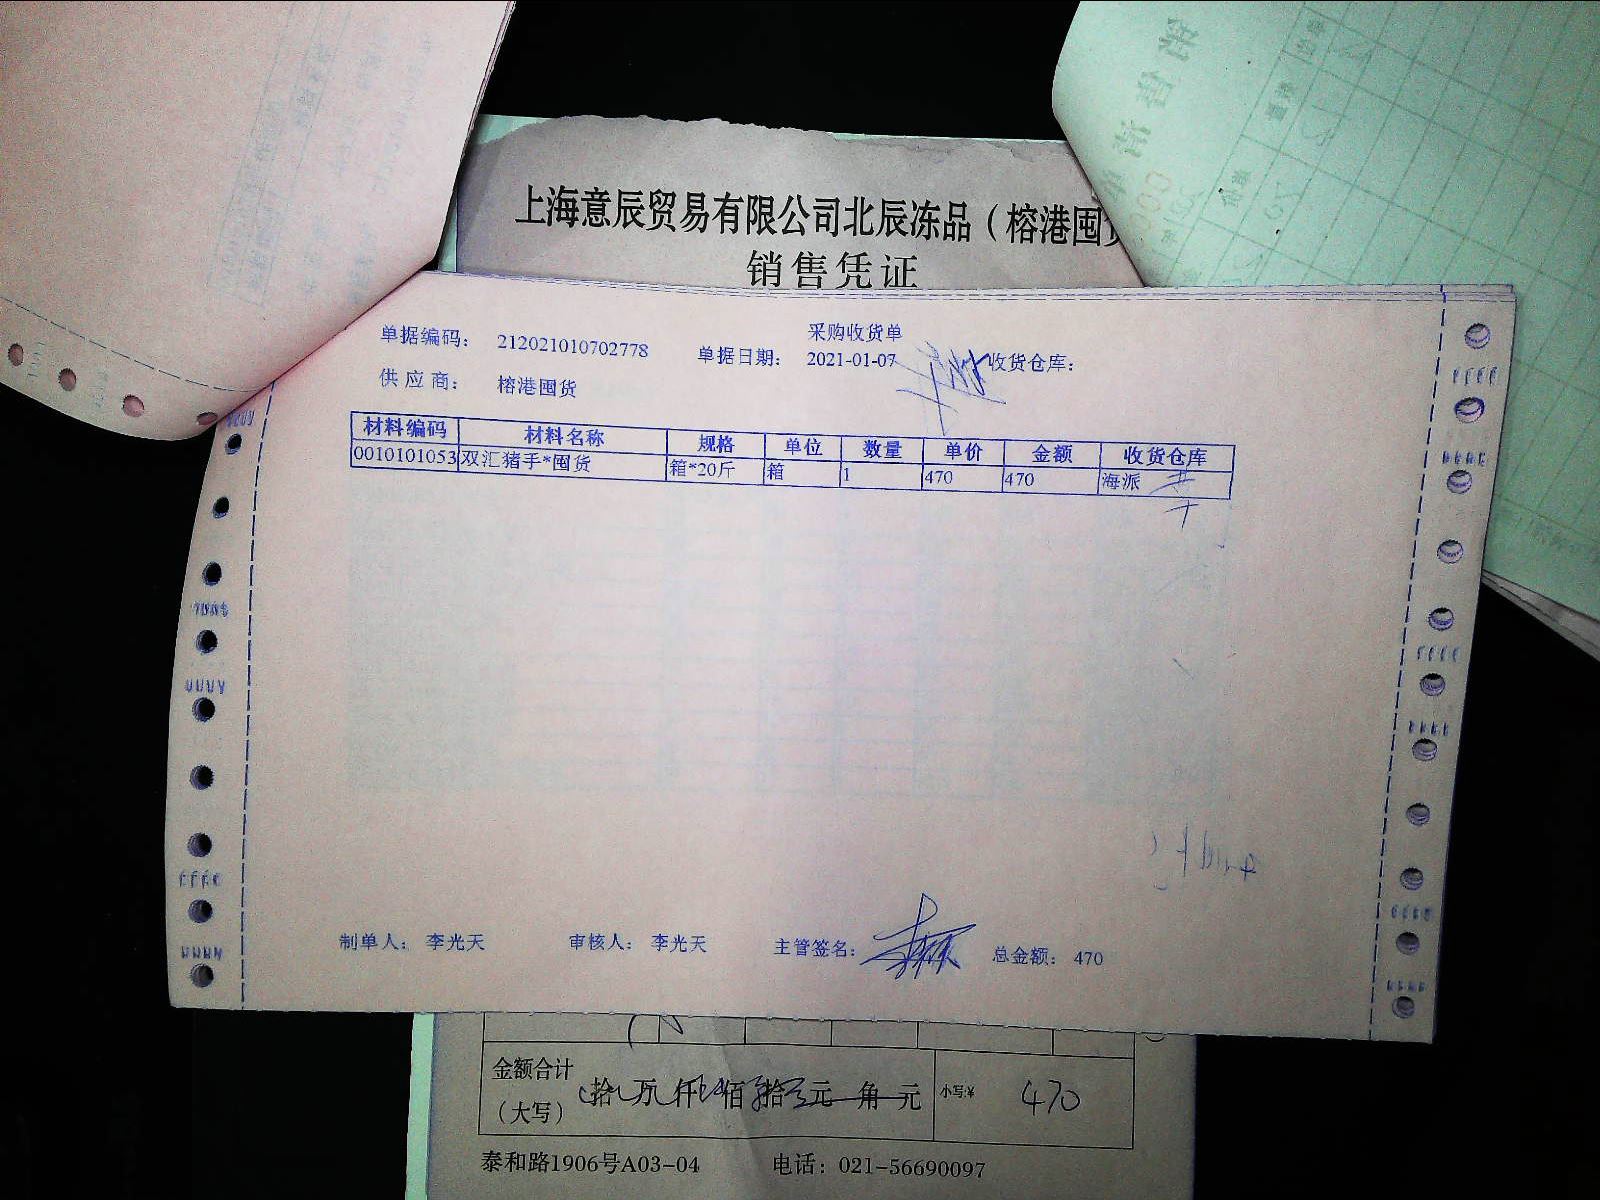 上海意辰贸易有限公司北辰冻品（榕港囤
销售凭证
采购收货单
单据编码： 212021010702778 单据日期： 2021-01-07 收货仓库：
供应商： 榕港囤货
材料编码 材料名称 规格 单位 数量 单价 金额 收货仓库
0010101053 双汇猪手*囤货 箱*20斤 箱 1 470 470 海派
制单人： 李光天 审核人： 李光天 主管签名： 总金额： 470
金额合计
（大写） 拾 万 仟 佰 拾 元 角 元 小写:¥ 470
泰和路1906号A03-04 电话：021-56690097